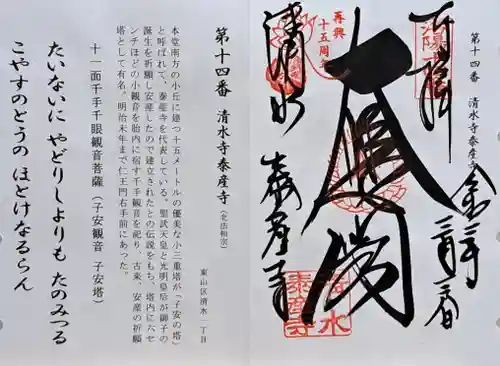 第十四番 清水寺泰産寺
奉拝
再興
十五周年
大悲閣
清水
泰産寺
第十四番 清水寺泰産寺(北法相宗)
東山区清水一丁目
本堂南方の小丘に建つ十五メートルの優美な小三重塔が「子安の塔」
と呼ばれて、泰産寺を代表している。聖武天皇と光明皇后が御子の
誕生を祈願し安産したので建立されたとの伝説をもち、塔内に六セ
ンチほどの小観音を胎内に宿す千手観音を祀り、古来、安産の祈願
塔として有名。明治末年まで仁王門右手前にあった。
十一面千手千眼観音菩薩(子安観音 子安塔)
たいないに やどりしよりも たのみつる
こやすのとうの ほとけなるらん